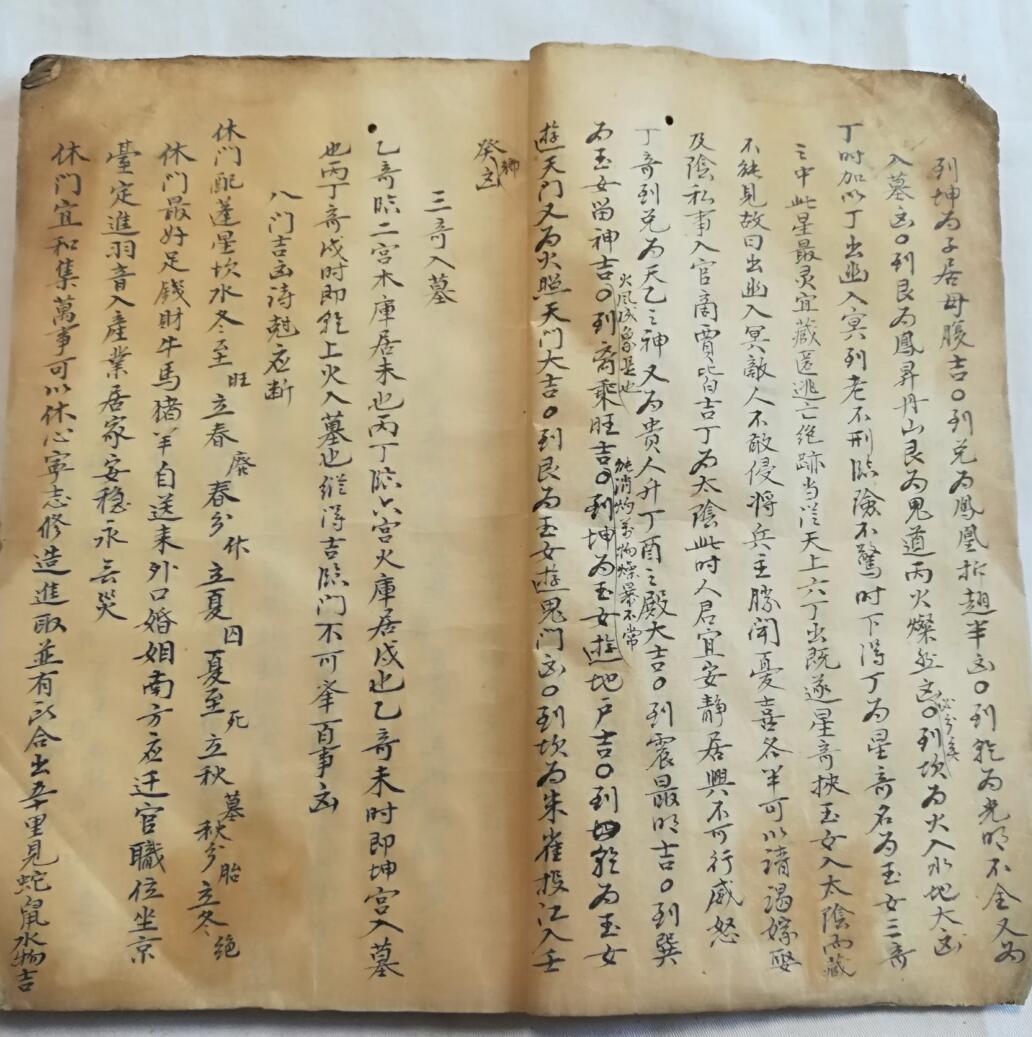 到坤为子居母腹吉○到兑为鳳凰折翅半凶○到乾为光明不全又为
入墓凶○到艮为鳳昇丹山艮为鬼道丙火燦然凶○到坎为火入水地大凶
丁时加以丁出幽入冥到老不刑臨險不驚时下得丁为星奇名为玉女三奇
之中此星最灵宜藏匿逃亡绝跡当从天上六丁出既遂星奇挾玉女入太陰而藏
不能見故曰出幽入冥敵人不敢侵将兵主勝聞憂喜各半可以請謁嫁娶
及陰私事入官商賈皆吉丁为太陰此时人君宜安靜居興不可行威怒
丁奇到兑为天乙之神又为贵人升丁酉之殿大吉○到震最明吉○到巽
为玉女留神吉○到离乘旺吉○到坤为玉女遊地户吉○到乾为玉女
火风成象是也
能消灼万物燥暴不常
遊天门又为火照天门大吉○到艮为玉女遊鬼门凶○到坎为朱雀投江入壬
癸凶
三奇入墓
乙奇臨二宫木庫居未也丙丁臨六宫火庫居戌也乙奇未时即坤宫入墓
也丙丁奇戌时即乾上火入墓也縱得吉臨门不可举百事凶
八门吉凶诗尅应断
休门配蓬星坎水冬至旺立春廢春分休立夏囚夏至死立秋墓秋分胎立冬绝
休门最好足錢財牛馬猪羊自送来外口婚姻南方应迁官職位坐京
臺定進羽音入產業居家安穩永无災
休门宜和集萬事可以休心寧志修造進取並有所合出五十里見蛇鼠水物吉